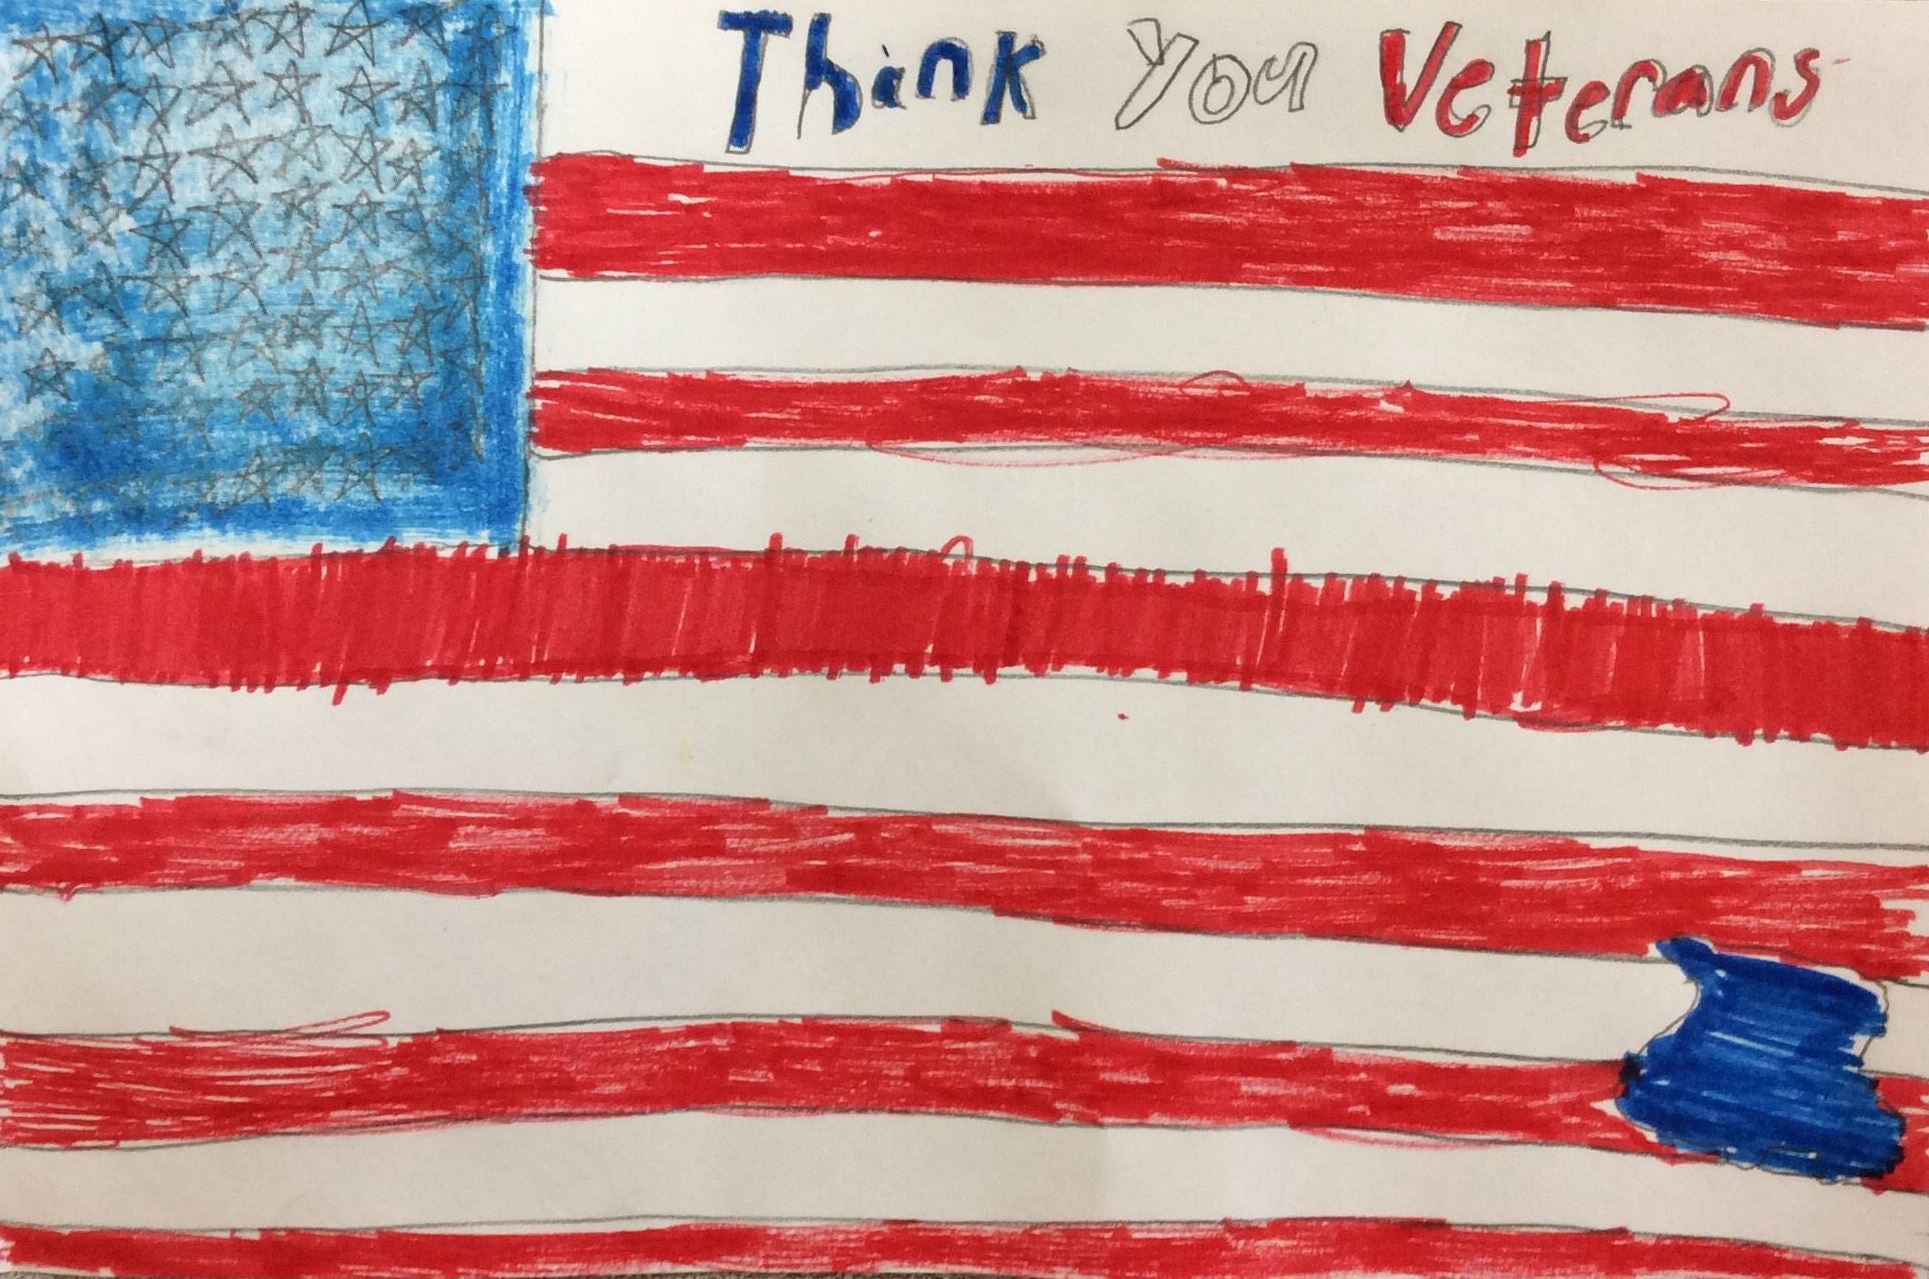 Thank You Veterans